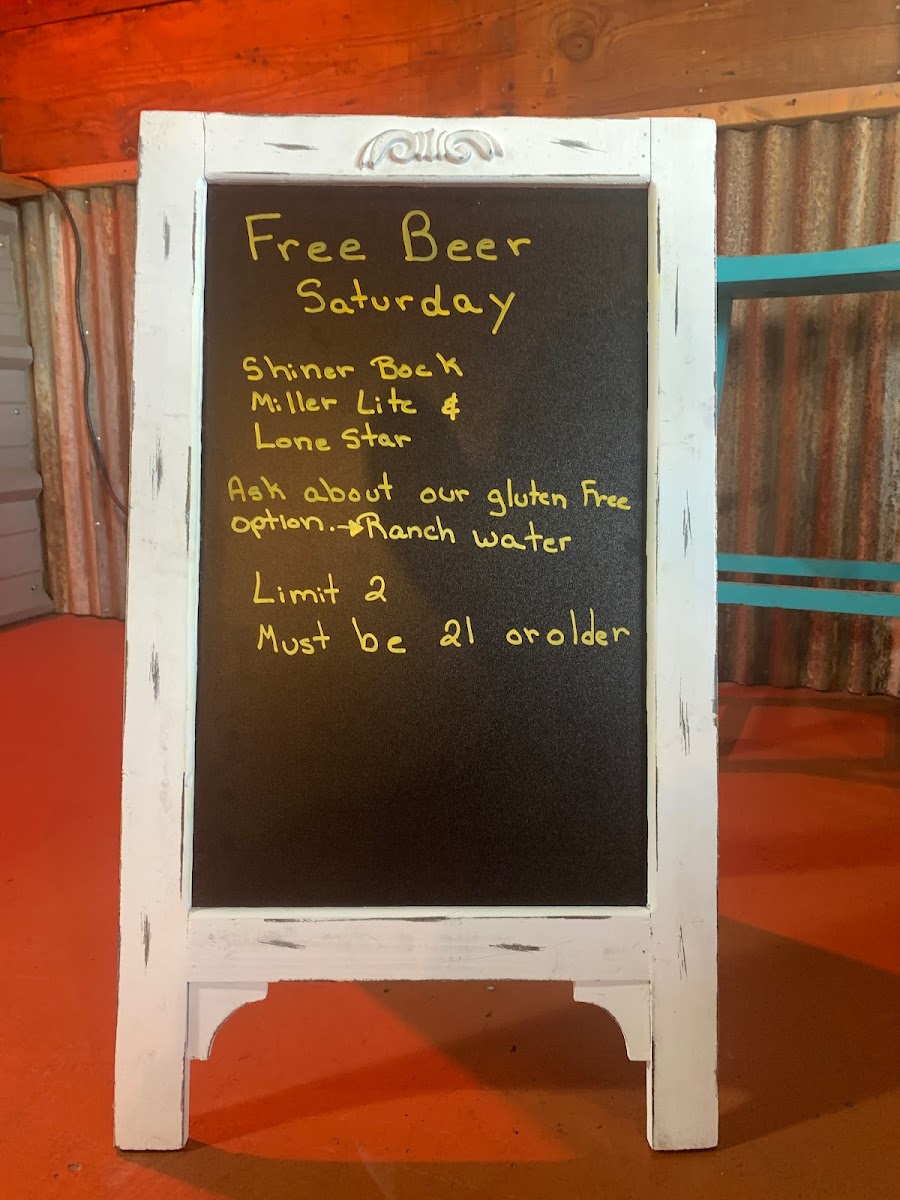 Free Beer
Saturday
Shiner Bock
Miller Lite &
Lone Star
Ask about our gluten Free
option.→Ranch water
Limit 2
Must be 21 or older